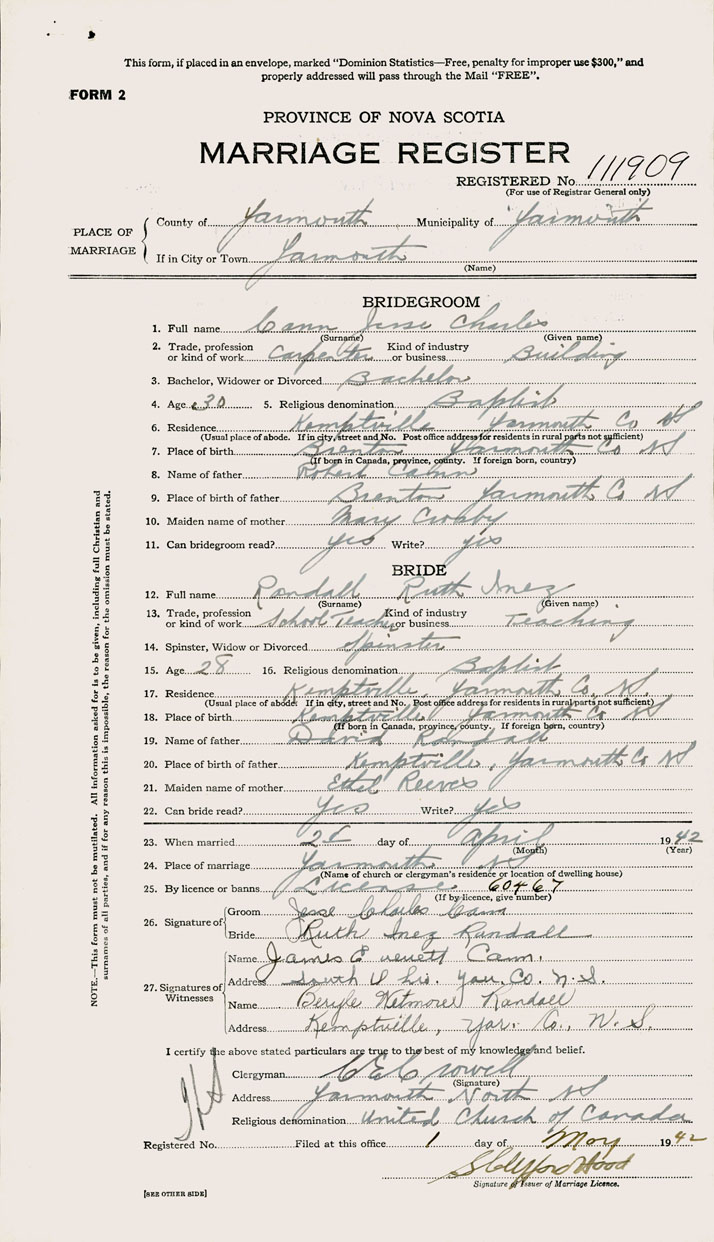 This form, if placed in an envelope, marked "Dominion Statistics—Free, penalty for improper use $300," and
properly addressed will pass through the Mail "FREE".
FORM 2
PROVINCE OF NOVA SCOTIA
MARRIAGE REGISTER
REGISTERED No. 111909
(For use of Registrar General only)
PLACE OF MARRIAGE
County of Yarmouth Municipality of Yarmouth
If in City or Town Yarmouth
(Name)
BRIDEGROOM
1. Full name Cann Jesse Charles
(Surname) (Given name)
2. Trade, profession or kind of work Carpenter Kind of industry or business Building
3. Bachelor, Widower or Divorced Bachelor
4. Age 30 5. Religious denomination Baptist
6. Residence Kemptville Yarmouth Co NS
(Usual place of abode. If in city, street and No. Post office address for residents in rural parts not sufficient)
7. Place of birth Brenton Yarmouth Co NS
(If born in Canada, province, county. If foreign born, country)
8. Name of father Robert Cann
9. Place of birth of father Brenton Yarmouth Co NS
10. Maiden name of mother Mary Crosby
11. Can bridegroom read? yes Write? yes
BRIDE
12. Full name Randall Ruth Inez
(Surname) (Given name)
13. Trade, profession or kind of work School Teacher Kind of industry or business Teaching
14. Spinster, Widow or Divorced Spinster
15. Age 28 16. Religious denomination Baptist
17. Residence Kemptville, Yarmouth Co. NS.
(Usual place of abode. If in city, street and No. Post office address for residents in rural parts not sufficient)
18. Place of birth Kemptville Yarmouth Co NS
(If born in Canada, province, county. If foreign born, country)
19. Name of father David Randall
20. Place of birth of father Kemptville, Yarmouth Co NS
21. Maiden name of mother Ethel Reeves
22. Can bride read? Yes Write? yes
23. When married day of April 1942
(Month) (Year)
24. Place of marriage Yarmouth NS
(Name of church or clergyman's residence or location of dwelling house)
25. By licence or banns License 60467
(If by licence, give number)
26. Signature of
Groom Jesse Charles Cann
Bride Ruth Inez Randall
27. Signatures of Witnesses
Name James Everett Cann.
Address South Ohio. Yar. Co. N.S.
Name Beryle Wetmore Randall
Address Kemptville, Yar. Co., N.S.
I certify the above stated particulars are true to the best of my knowledge and belief.
Clergyman C E Crowell
(Signature)
Address Yarmouth North NS
Religious denomination United Church of Canada
Registered No. Filed at this office 1 day of May 1942
S Clifford Hood
Signature of Issuer of Marriage Licence.
[SEE OTHER SIDE]
NOTE.—This form must not be mutilated. All information asked for is to be given, including full Christian and
surnames of all parties, and if for any reason this is impossible, the reason for the omission must be stated.